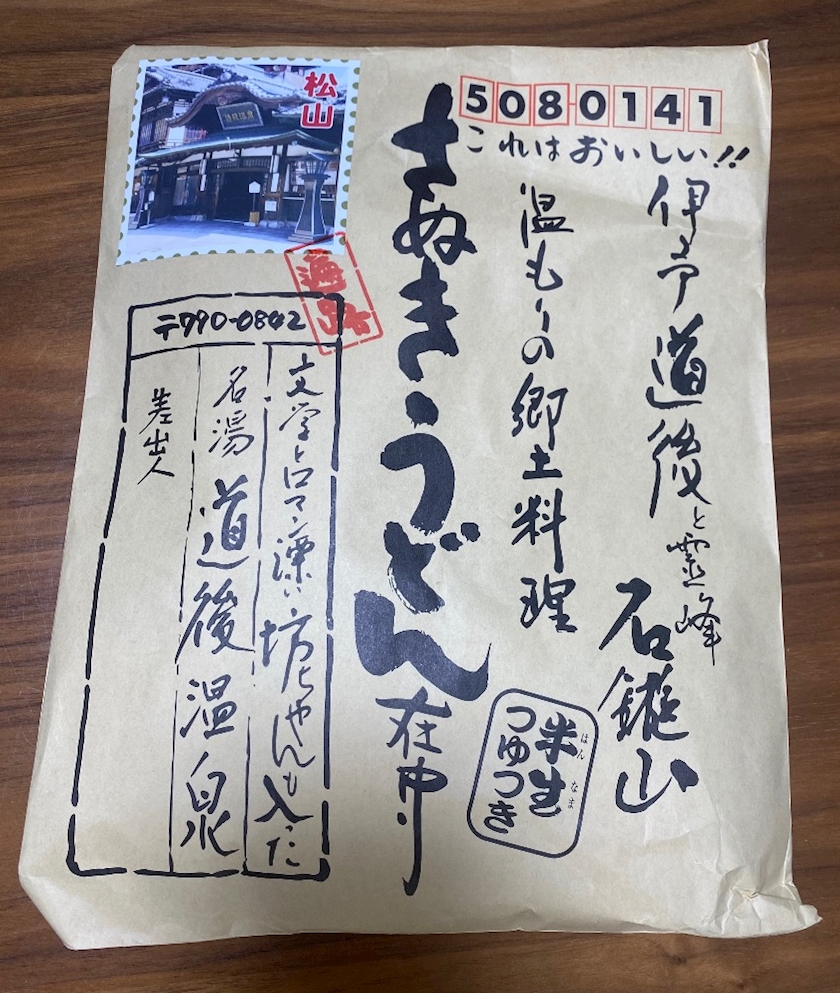 5080141
これはおいしい!!
伊予道後と霊峰石鎚山
温もりの郷土料理
さぬきうどん在中
半生つゆつき
はんなま
松山
道後温泉
〒790-0842
文学とロマン漂い坊ちゃんも入った
名湯道後温泉
差出人